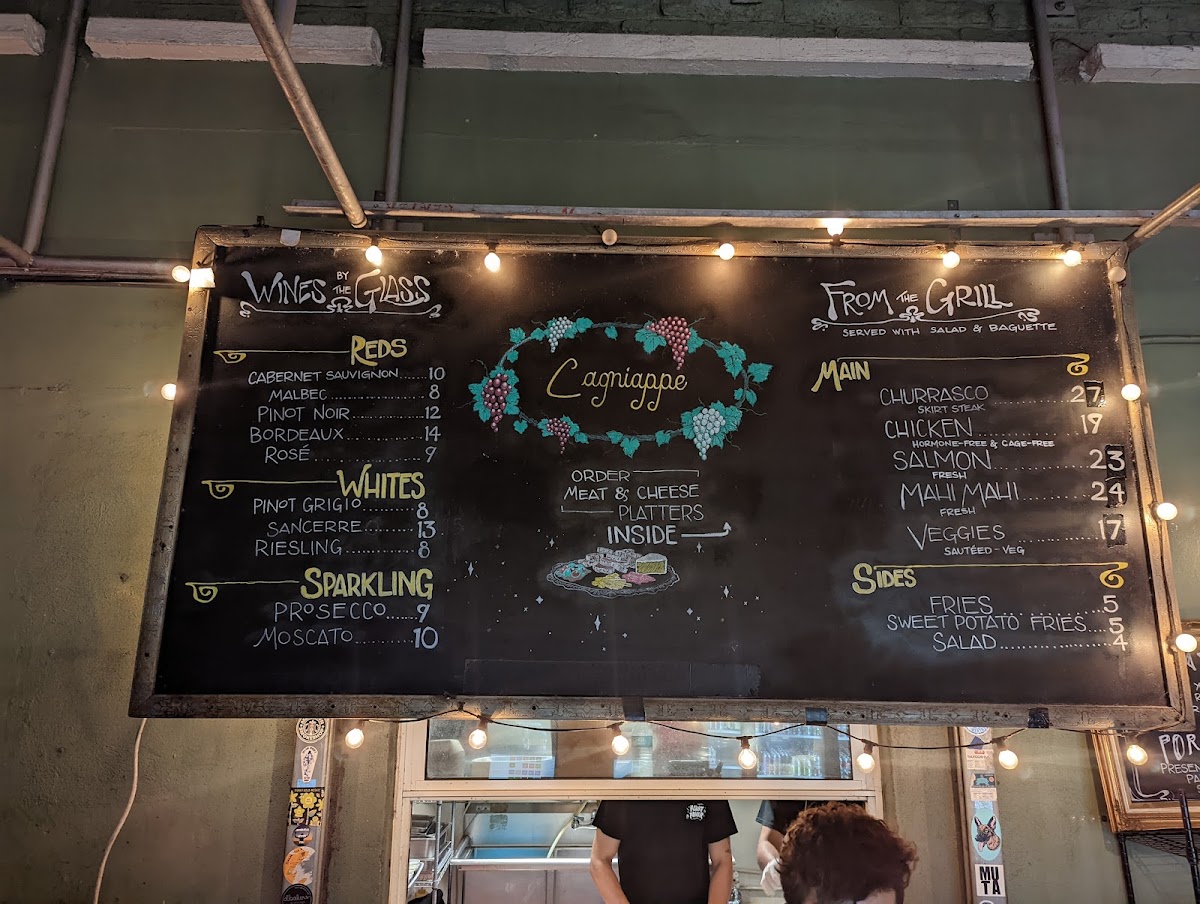 WINES BY THE GLASS
REDS
CABERNET SAUVIGNON......10
MALBEC..............8
PINOT NOIR...........12
BORDEAUX............14
ROSÉ..................9
WHITES
PINOT GRIGIO........8
SANCERRE........13
RIESLING............8
SPARKLING
PROSECCO......9
MOSCATO..........10
Cagniappe
ORDER
MEAT & CHEESE
PLATTERS
INSIDE
FROM THE GRILL
SERVED WITH SALAD & BAGUETTE
MAIN
CHURRASCO..............27
SKIRT STEAK
CHICKEN................19
HORMONE-FREE & CAGE-FREE
SALMON................23
FRESH
MAHI MAHI...........24
FRESH
VEGGIES..............17
SAUTÉED-VEG
SIDES
FRIES................5
SWEET POTATO FRIES....5
SALAD..................4
POR
PRESEN
PA
MUTA